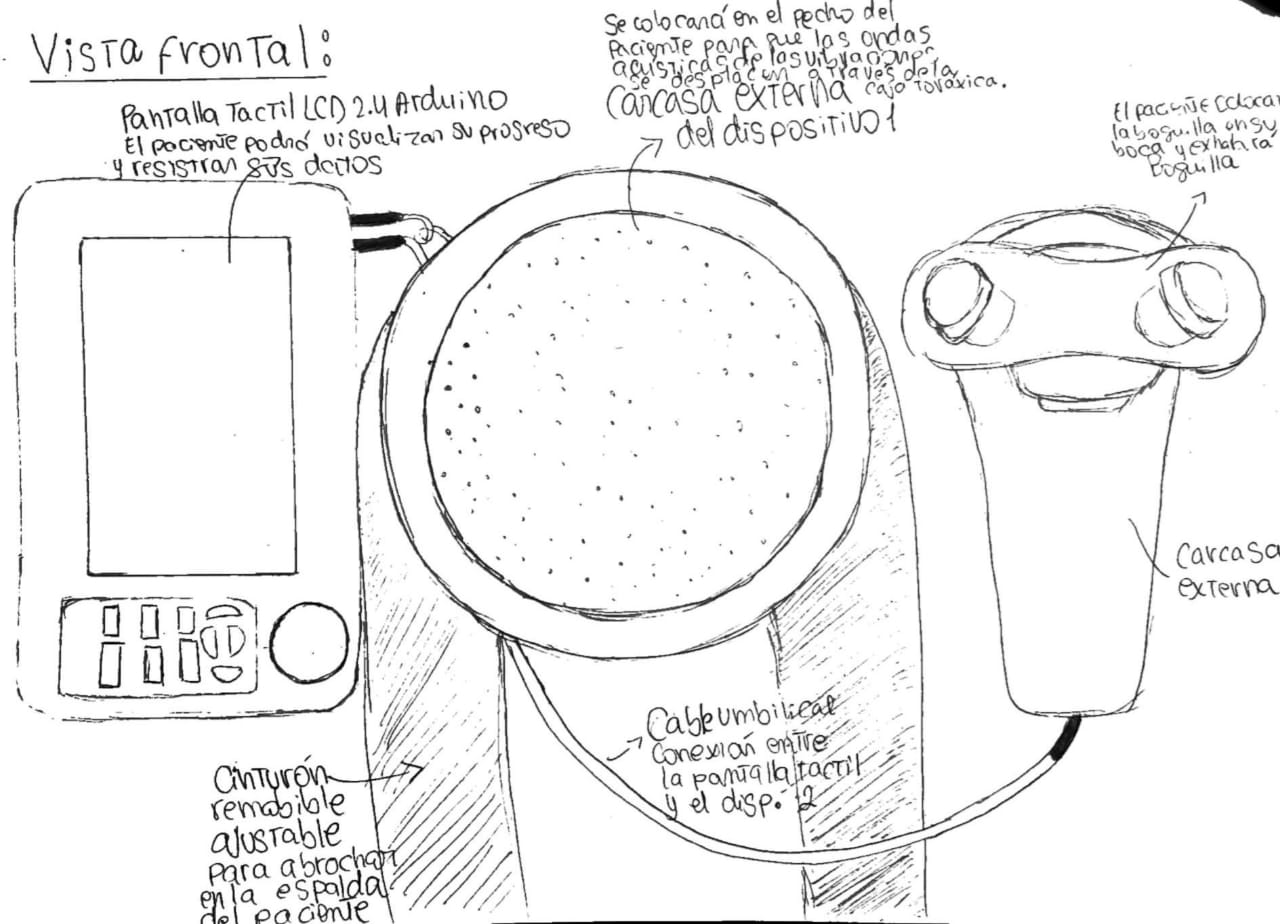 Vista frontal:
Pantalla Tactil LCD 2.4 Arduino
El paciente podrá visualizar su progreso
y registrar sus datos
Se colocará en el pecho del
paciente para que las ondas
acústicas de las vibraciones
se desplacen a través de la
caja toráxica.
Carcasa externa
del dispositivo 1
El paciente colocar
la boquilla en su
boca y exhalará
boquilla
Carcasa
externa
Cable umbilical
Conexión entre
la pantalla tactil
y el disp. 2
Cinturón
removible
ajustable
para abrochar
en la espalda
del paciente